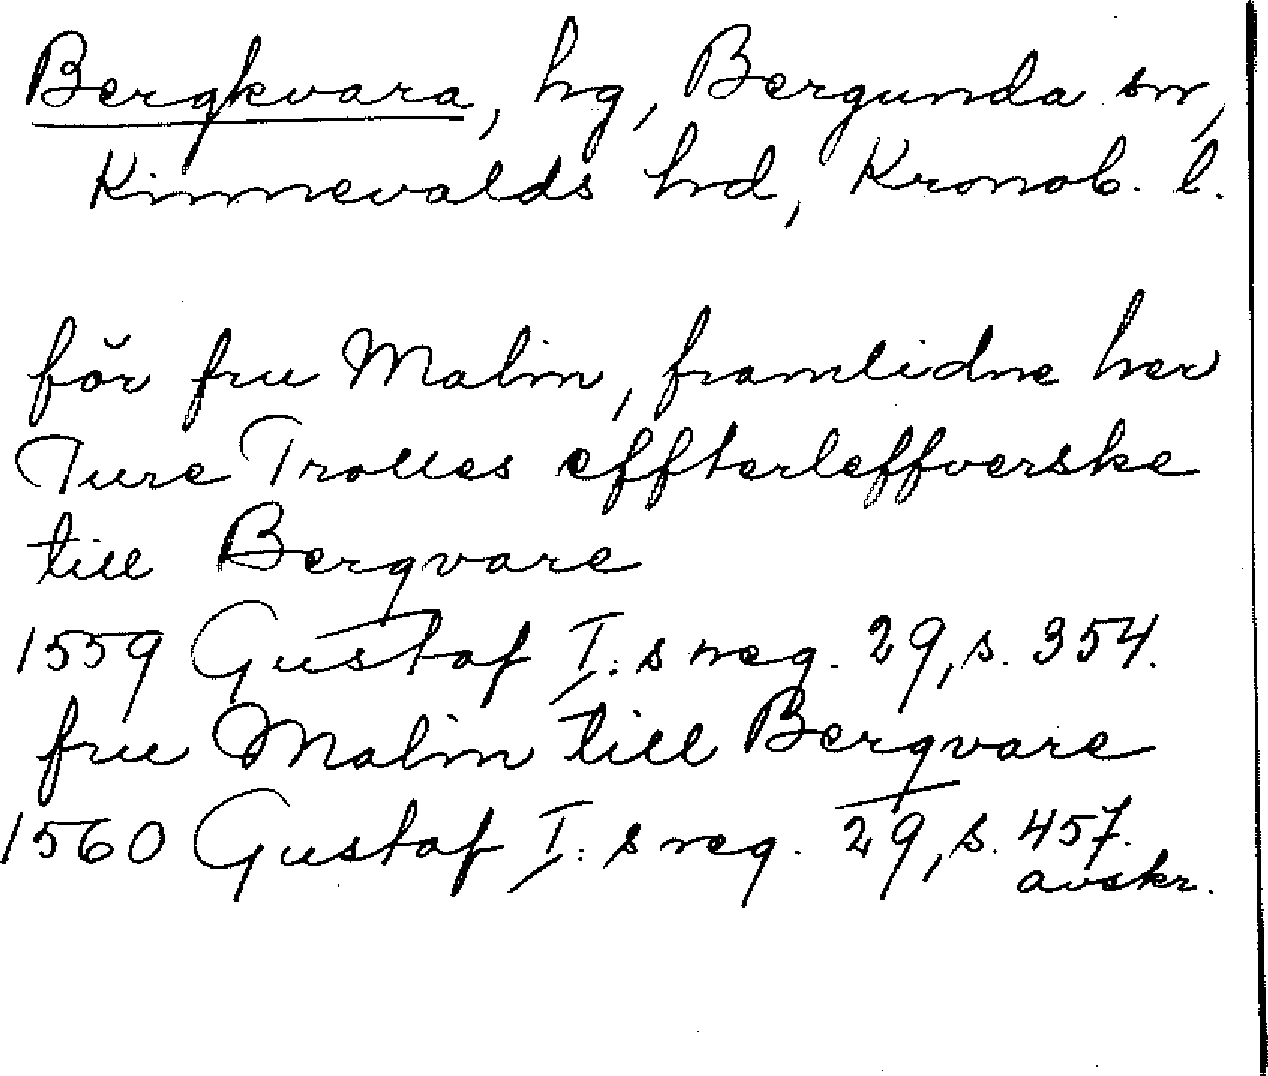 Bergkvara, hg, Bergunda sn,
Kinnevalds hd, Kronob. l.
för fru Malin, framlidne her
Ture Trolles effterleffverske
till Bergvare
1559 Gustaf I:s reg. 29, s. 354.
fru Malin till Bergvare
1560 Gustaf I:s reg. 29, s. 457.
avskr.